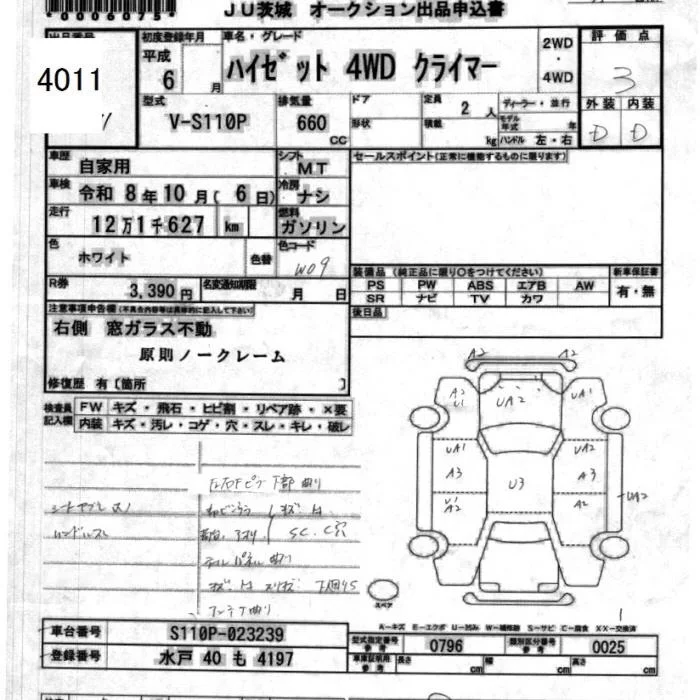 *0006075*
JU茨城 オークション出品申込書
4011
初度登録年月
平成 6 月
車名・グレード
ハイゼット 4WD クライマー
2WD ・ 4WD
評価点
3
外装 内装
D D
型式
V-S110P
排気量
660 CC
ドア
形状
定員 2 人
積載 kg
ディーラー・並行
モデル年式 年
ハンドル 左・右
車歴 自家用
シフト MT
セールスポイント(正常に機能するものに限ります)
車検 令和 8年 10月( 6日)
冷房 ナシ
走行 12万1千627 km
燃料 ガソリン
色 ホワイト 色替
色コード W09
R券 3,390円
名変通知期限 月 日
装備品 (純正品に限り○をつけてください) 新車保証書
PS PW ABS エアB AW 有・無
SR ナビ TV カワ
後日品
注意事項申告欄(不具合内容等は具体的に記入して下さい)
右側 窓ガラス不動
原則ノークレーム
修復歴 有〔箇所 〕
検査員記入欄
FW キズ・飛石・ヒビ割・リペア跡・×要
内装 キズ・汚レ・コゲ・穴・スレ・キレ・破レ
A2 A2
A2 U1 UA2 UA1
UA1 UA2
A3 U3 A3
U1 A2 A2 UA2
スペア
A-キズ E-エクボ U-凹み W-補修跡 S-サビ C-腐食 XX-交換済
車台番号 S110P-023239
登録番号 水戸 40 も 4197
型式指定番号 参考 0796 類別区分番号 参考 0025
車庫証明用 参考 長さ cm 幅 cm 高さ cm